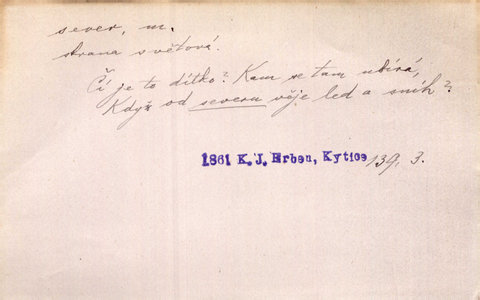 sever, m.
strana světová.
Čí je to dítko? Kam se tam ubírá,
Když od severu věje led a sníh?
1861 K. J. Erben, Kytice 139, 3.